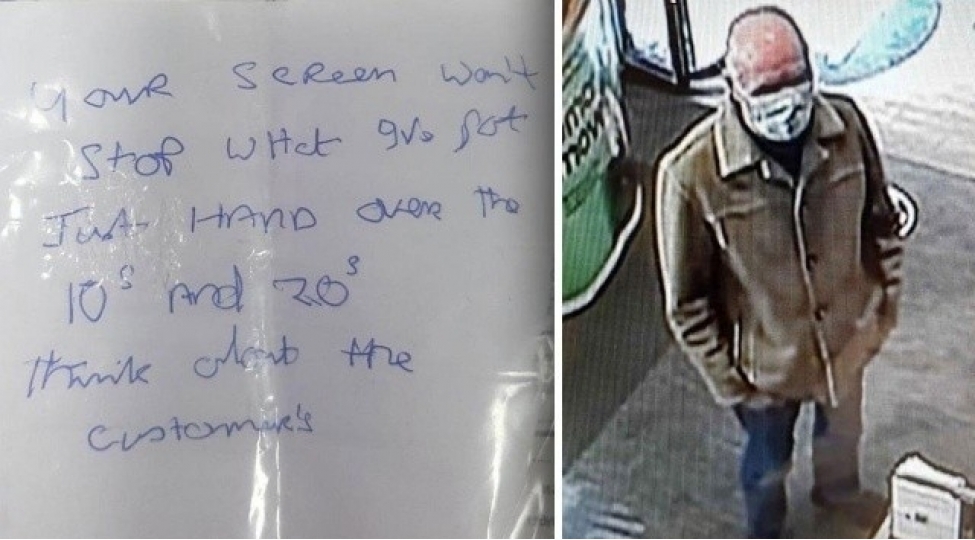 Your Screen won't
Stop What I've got
Just HAND over the
10s And 20s
think about the
customer's